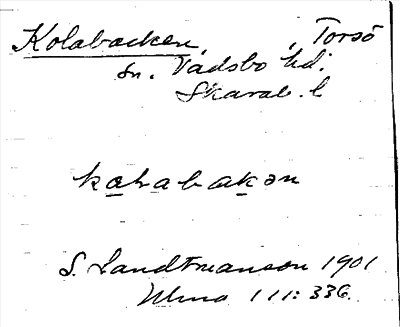 Kolabacken, , Torsö
sn. Vadsbo hd.
Skarab. l
kalabakən
S. Landtmanson 1901
Ulma 111: 336.